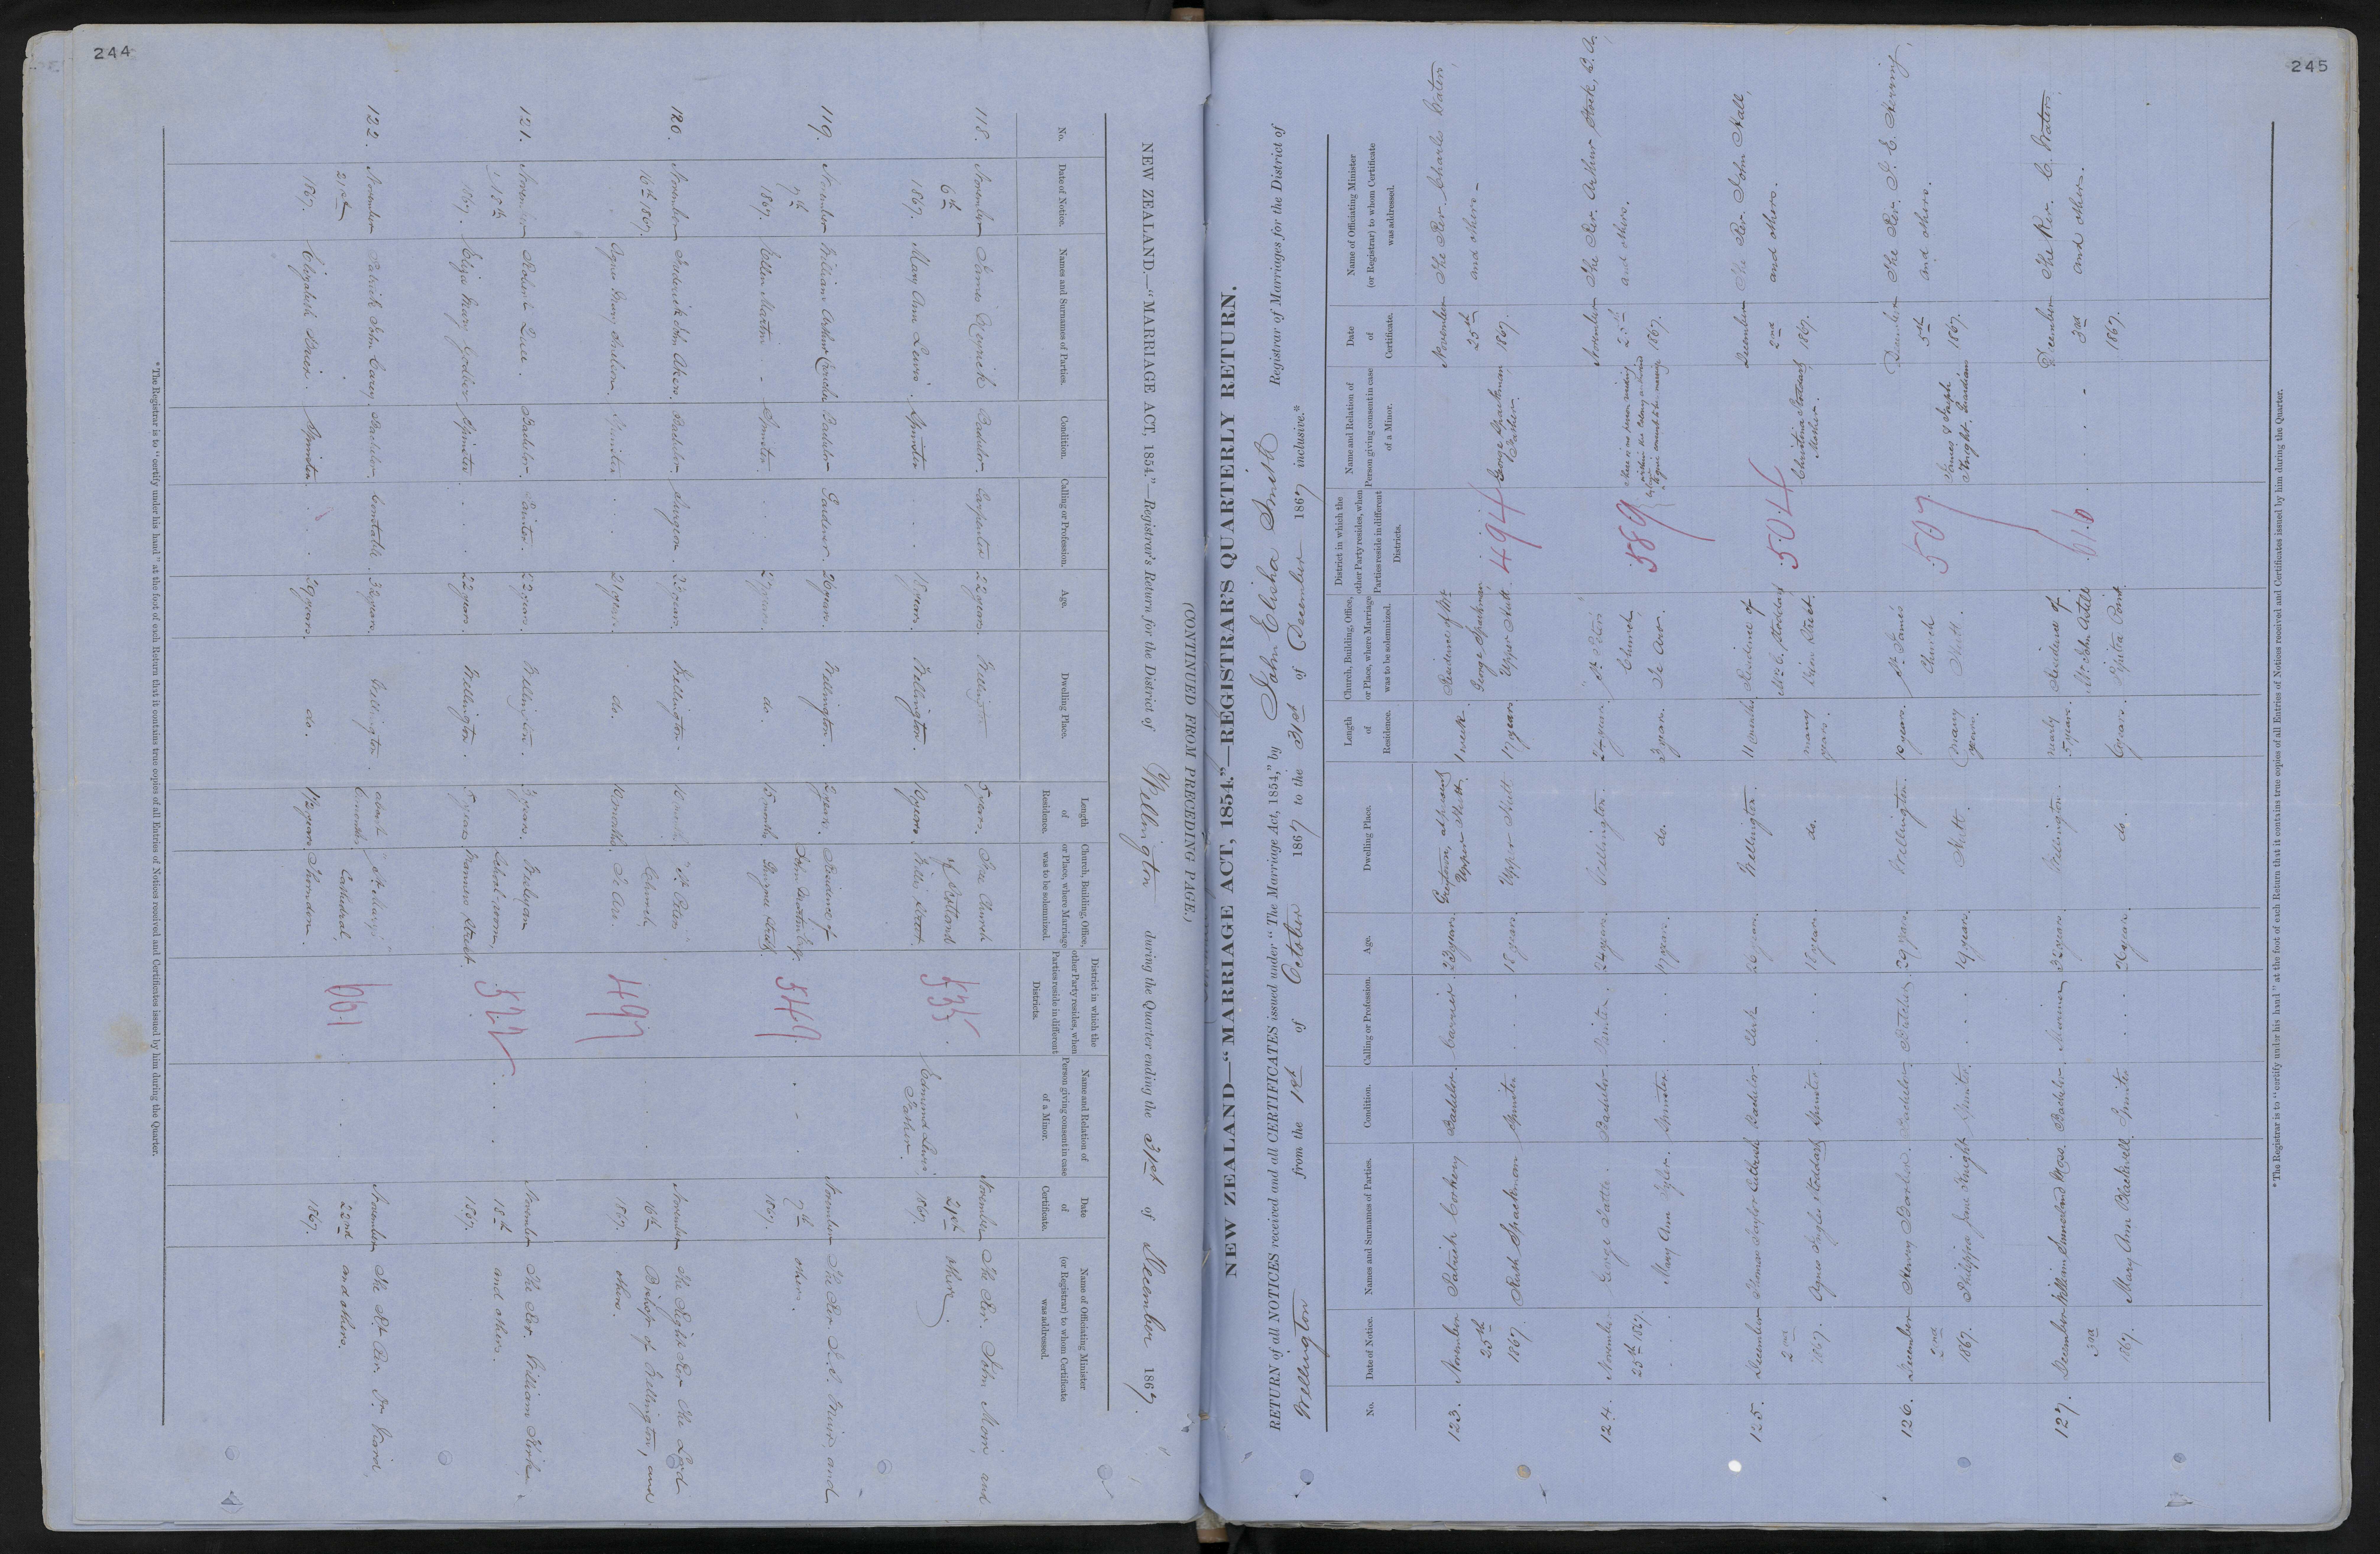 244
(CONTINUED FROM PRECEDING PAGE.)
NEW ZEALAND.—"MARRIAGE ACT, 1854."—Registrar's Return for the District of Wellington during the Quarter ending the 31st of December 1867.
No. Date of Notice. Names and Surnames of Parties. Condition. Calling or Profession. Age. Dwelling Place. Length of Residence. Church, Building, Office, or Place, where Marriage was to be solemnized. District in which the other Party resides, when Parties reside in different Districts. Name and Relation of Person giving consent in case of a Minor. Date of Certificate. Name of Officiating Minister (or Registrar) to whom Certificate was addressed.
118. November James Bachelor. Carpenter 22 years. Wellington 5 years. Free Church November The Rev. John Moir and
6th of Scotland 535 Edmund Lewis 21st others.
1867. Mary Ann Lewis. Spinster 18 years. Wellington. 10 years. Willis Street Father. 1867.
119. November William Arthur Bachelor Gardener. 26 years. Wellington. 2 years. Residence of November The Rev. Muir and
7th John 549 7th others.
1867. Ellen Martin. Spinster. 27 years. do. 15 months. Ghuznee Street 1867.
120. November Frederick John Bachelor. Surgeon. Wellington. St. Peter's November The Right Rev. The Lord
16th 1867. Church, 497 16th Bishop of Wellington, and
Agnes Mary Spinster. 21 years. do. 10 months. Te Aro. 1867. others.
121. November Robert Bachelor. 22 years. Wellington. 3 years. Wesleyan November The Rev. William Kirk,
18th School-room, 522 18th and others.
1867. Eliza Mary Spinster. 22 years. Wellington. 5 years Manners Street. 1867.
122. November Patrick John Carey. Bachelor. Constable. 32 years. Wellington. about St. Mary's November The Rt. Rev. Dr. Viard
21st 6 months Cathedral, 661 22nd and others.
1867. Elizabeth Spinster. 29 years. do. 1 1/2 years Thorndon. 1867.
*The Registrar is to "certify under his hand" at the foot of each Return that it contains true copies of all Entries of Notices received and Certificates issued by him during the Quarter.
245
NEW ZEALAND—"MARRIAGE ACT, 1854."—REGISTRAR'S QUARTERLY RETURN.
RETURN of all NOTICES received and all CERTIFICATES issued under "The Marriage Act, 1854," by John Elisha Smith Registrar of Marriages for the District of
Wellington from the 1st of October 1867 to the 31st of December 1867 inclusive.*
No. Date of Notice. Names and Surnames of Parties. Condition. Calling or Profession. Age. Dwelling Place. Length of Residence. Church, Building, Office, or Place, where Marriage was to be solemnized. District in which the other Party resides, when Parties reside in different Districts. Name and Relation of Person giving consent in case of a Minor. Date of Certificate. Name of Officiating Minister (or Registrar) to whom Certificate was addressed.
123. November Patrick Corkery Bachelor. Carrier. 23 years. Greytown, at present 1 week. Residence of Mr. November The Rev. Charles Waters,
25th Upper Hutt. George Spackman, 494 George Spackman 25th and others.
1867. Ruth Spackman Spinster 18 years. Upper Hutt 17 years. Upper Hutt. Father. 1867.
124. November George Tattle. Bachelor. 24 years. Wellington. 2 years. St. Peter's There is no person residing November The Rev. Arthur Stock, B.A.
25th 1867. Church, 589 within the Colony authorized 25th and others.
Mary Ann Tyler. Spinster. 17 years. do. 3 years. Te Aro. by law to give consent to the marriage 1867.
125. December Thomas Taylor Bachelor Clerk 26 years. Wellington. 11 months Residence of December The Rev. John Hall,
2nd Mrs. C. Stoddart 504 Christina Stoddart 2nd and others.
1867. Agnes Inglis Stoddart Spinster. 18 years. do. many years. Street. Mother. 1867.
126. December Henry Bachelor. 29 years. Wellington. 10 years. St. James December The Rev. T. E. Herring,
2nd Church 507 James & Joseph 5th and others.
1867. Philippa Jane Knight Spinster. 19 years. Hutt. many years. Hutt. Knight. Guardians 1867.
127. December William Sunderland Moss. Bachelor. Mariner 32 years. Wellington. nearly Residence of December The Rev. C. Waters,
3rd 5 years. Mr. John 616 3rd and others.
1867. Mary Ann Spinster. 26 years. do. 6 years. Point. 1867.
*The Registrar is to "certify under his hand" at the foot of each Return that it contains true copies of all Entries of Notices received and Certificates issued by him during the Quarter.